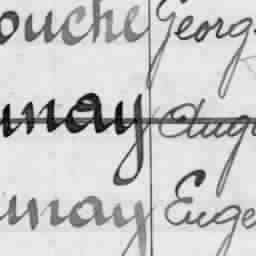 ouche Georg
unay Aug
unay Euge